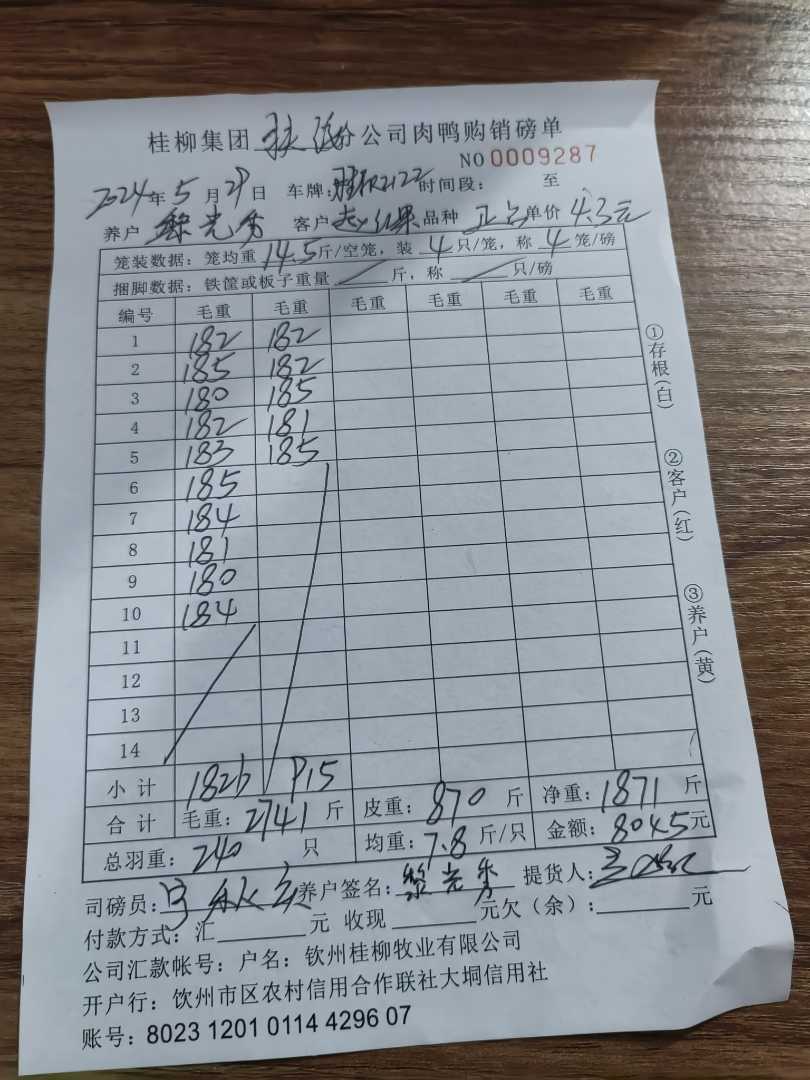 桂柳集团 公司肉鸭购销磅单
NO 0009287
2024年5月29日 车牌: 2122 时间段: 至
养户 黎光秀 客户 品种 单价 4.3元
笼装数据: 笼均重 14.5 斤/空笼, 装 4 只/笼, 称 4 笼/磅
捆脚数据: 铁筐或板子重量 / 斤, 称 / 只/磅
编号 毛重 毛重 毛重 毛重 毛重 毛重
1 182 182
2 185 182
3 180 185
4 182 181
5 183 185
6 185
7 184
8 181
9 180
10 184
11
12
13
14
小计 1826 915
合计 毛重: 2741 斤 皮重: 870 斤 净重: 1871 斤
总羽重: 240 只 均重: 7.8 斤/只 金额: 8045元
司磅员: 养户签名: 黎光秀 提货人:
付款方式: 汇 元 收现 元欠(余): 元
公司汇款帐号: 户名: 钦州桂柳牧业有限公司
开户行: 钦州市区农村信用合作联社大垌信用社
账号: 8023 1201 0114 4296 07
①存根(白)
②客户(红)
③养户(黄)